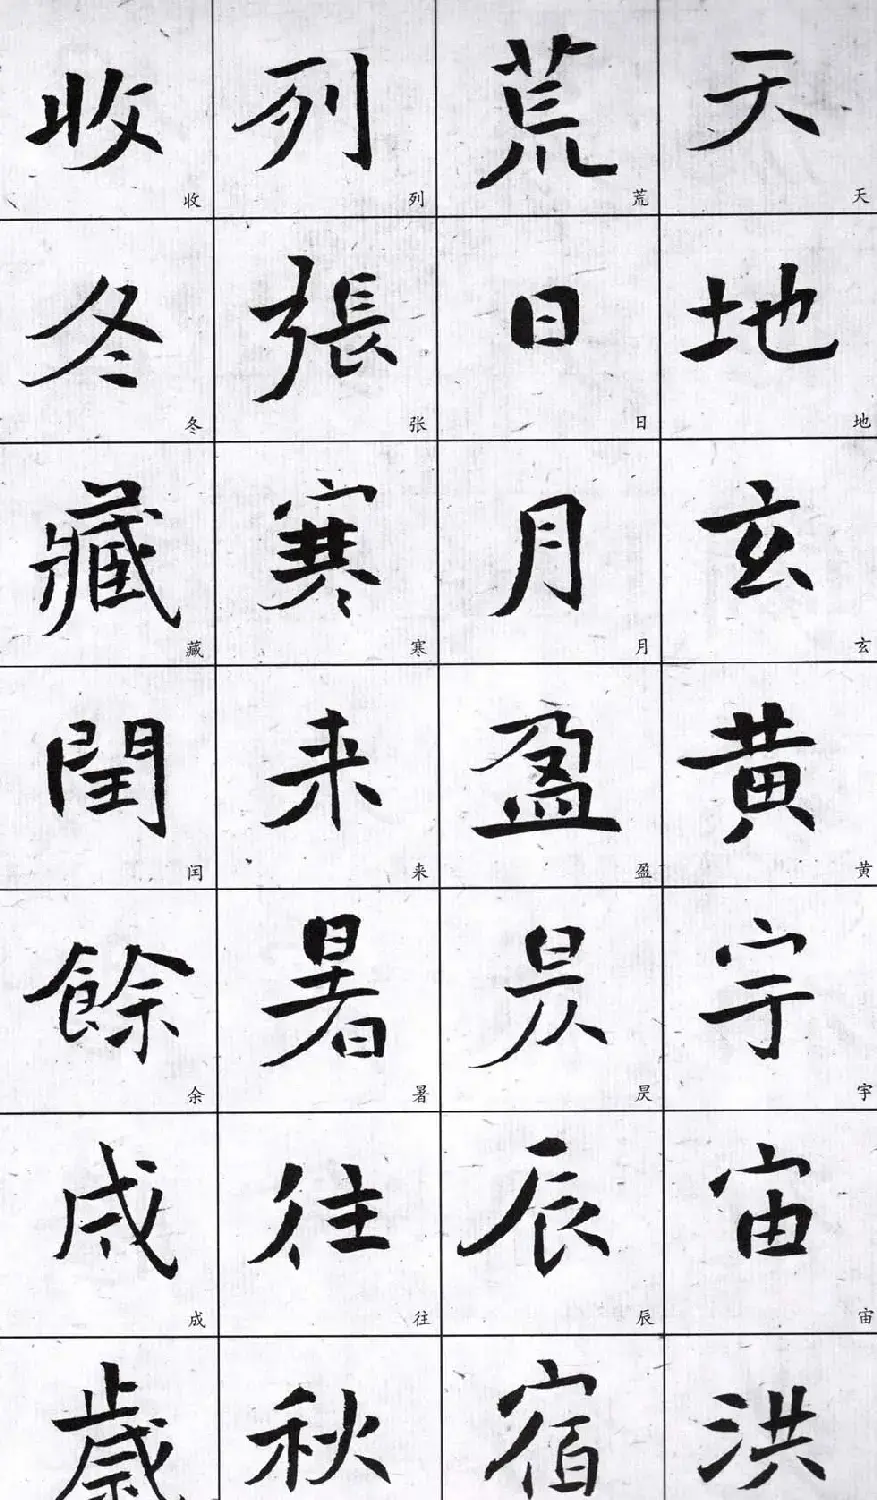 天地玄黄宇宙洪
天地玄黄宇宙
荒日月盈昃辰宿
荒日月盈昃辰
列張寒来暑往秋
列张寒来暑往
收冬藏閏餘成歲
收冬藏闰余成